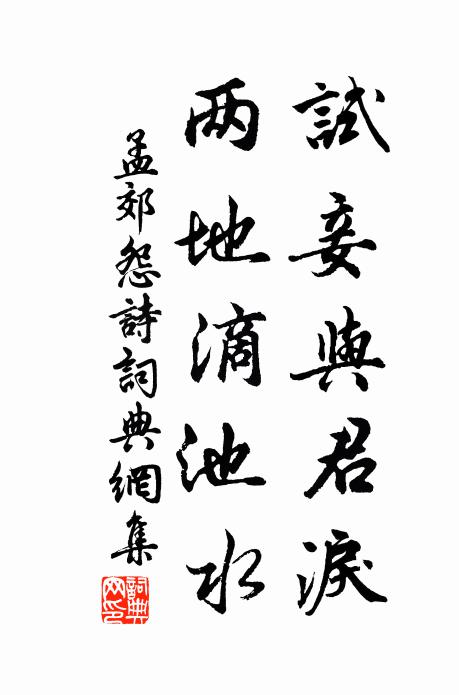 試妾與君淚
两地滴池水
孟郊怨詩詞典網集
詞典网印